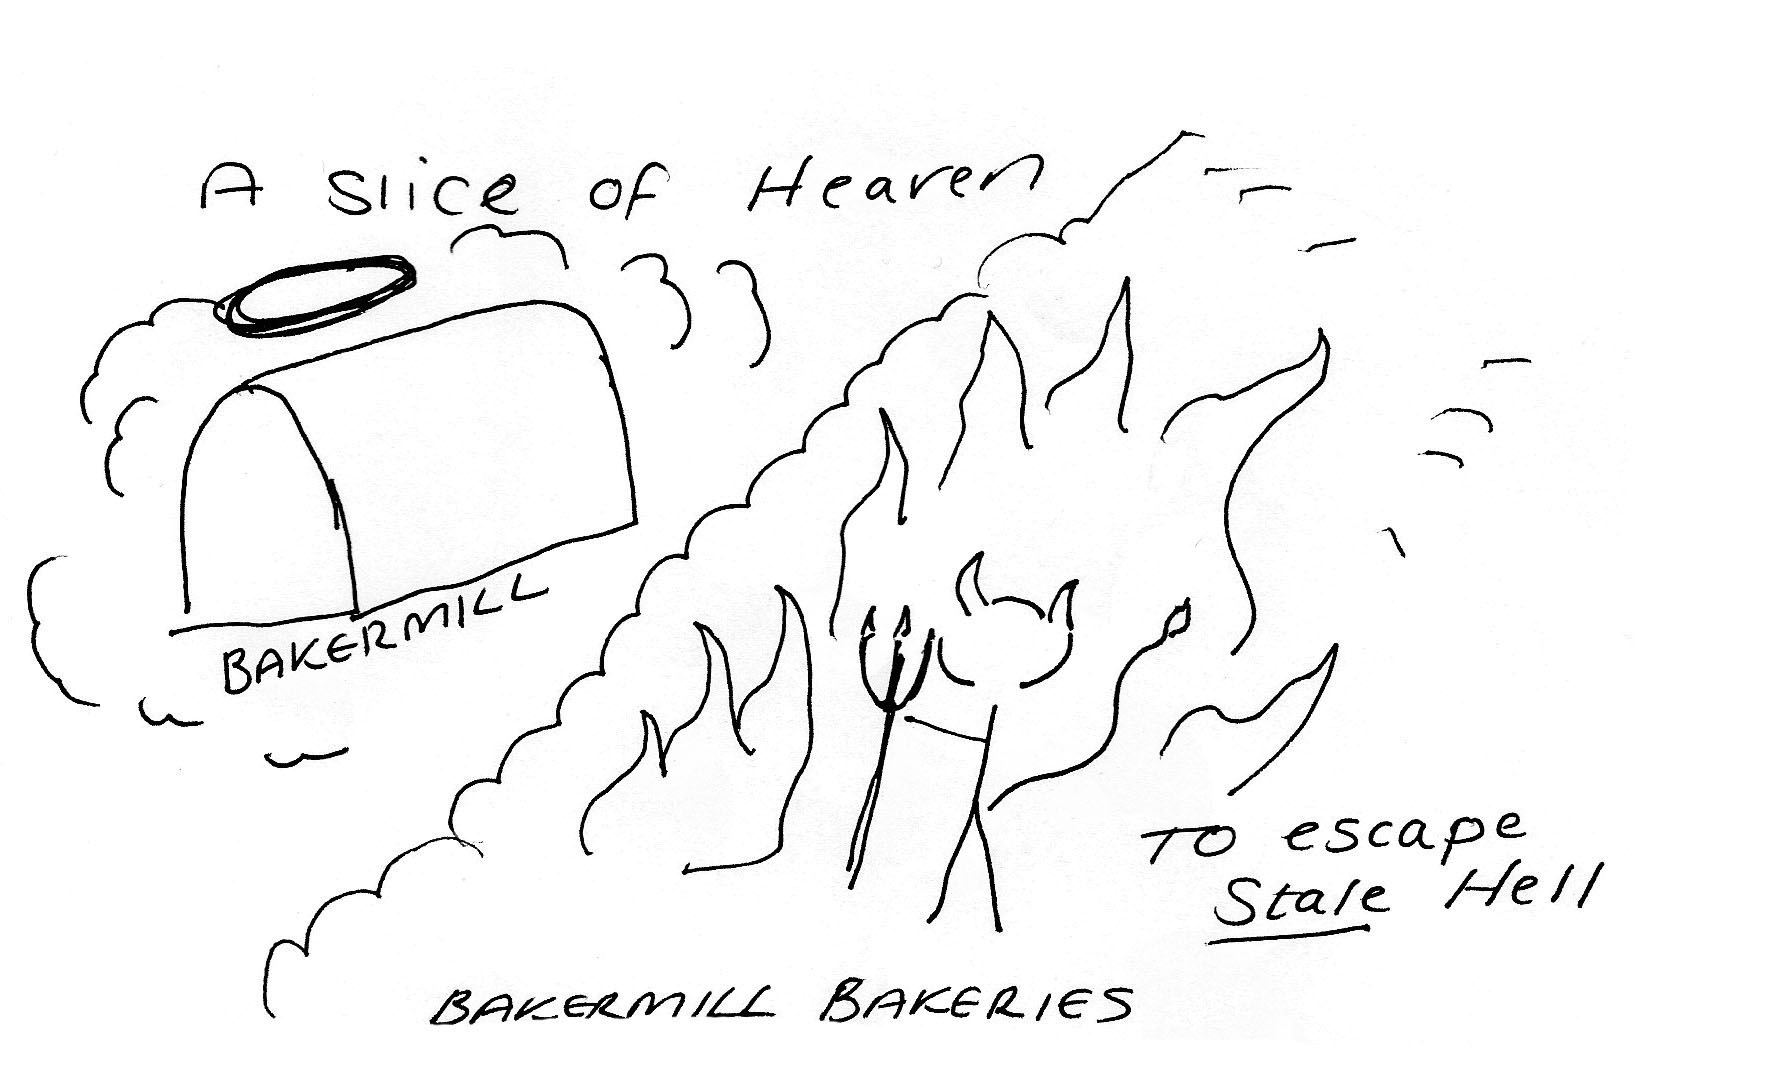 A Slice of Heaven
BAKERMILL
To escape
Stale Hell
BAKERMILL BAKERIES